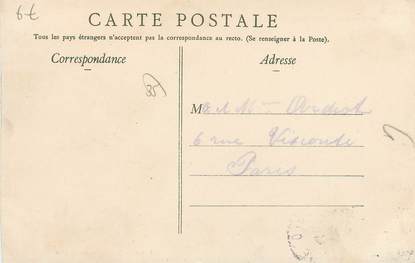 6€
CARTE POSTALE
Tous les pays étrangers n'acceptent pas la correspondance au recto. (Se renseigner à la Poste).
Correspondance
Adresse
35
M
6 rue Visconti
Paris